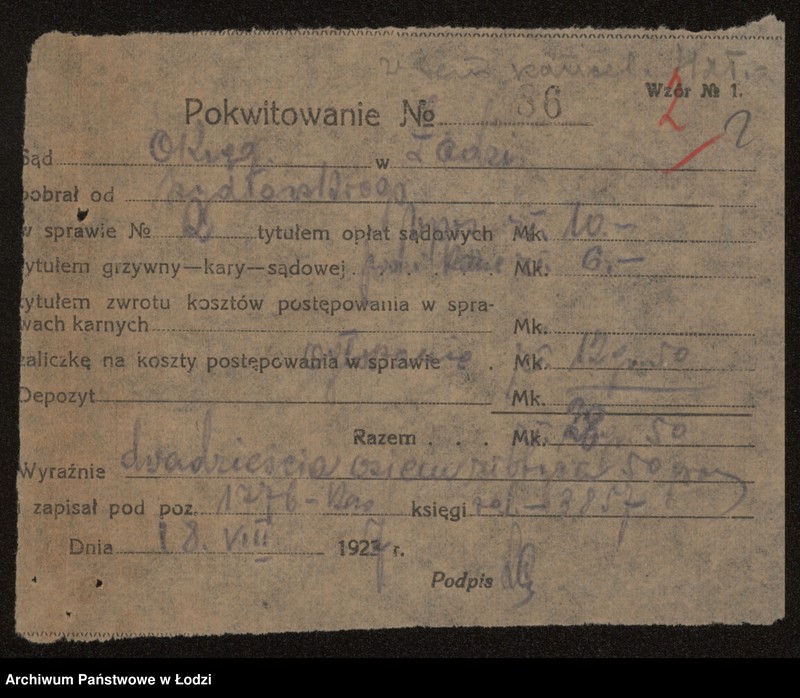 Wzór № 1.
2
Pokwitowanie № 36
Sąd Okręg. w Łodzi
pobrał od
w sprawie № 2 tytułem opłat sądowych Mk. 10.—
tytułem grzywny—kary—sądowej . . . . Mk. 6.—
tytułem zwrotu kosztów postępowania w spra-
wach karnych Mk.
zaliczkę na koszty postępowania w sprawie . Mk. 12 gr. 50
Depozyt Mk.
Razem . . . Mk. 28 gr. 50
Wyraźnie dwadzieścia osiem złotych 50 groszy
i zapisał pod poz. 1276 księgi 3857
Dnia 18. VIII 1927 r.
Podpis
Archiwum Państwowe w Łodzi